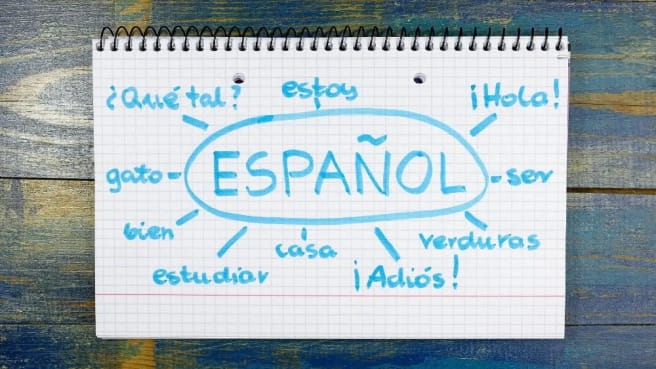 ¿Qué tal?
estoy
¡Hola!
gato
ESPAÑOL
ser
bien
casa
verduras
estudiar
¡Adiós!